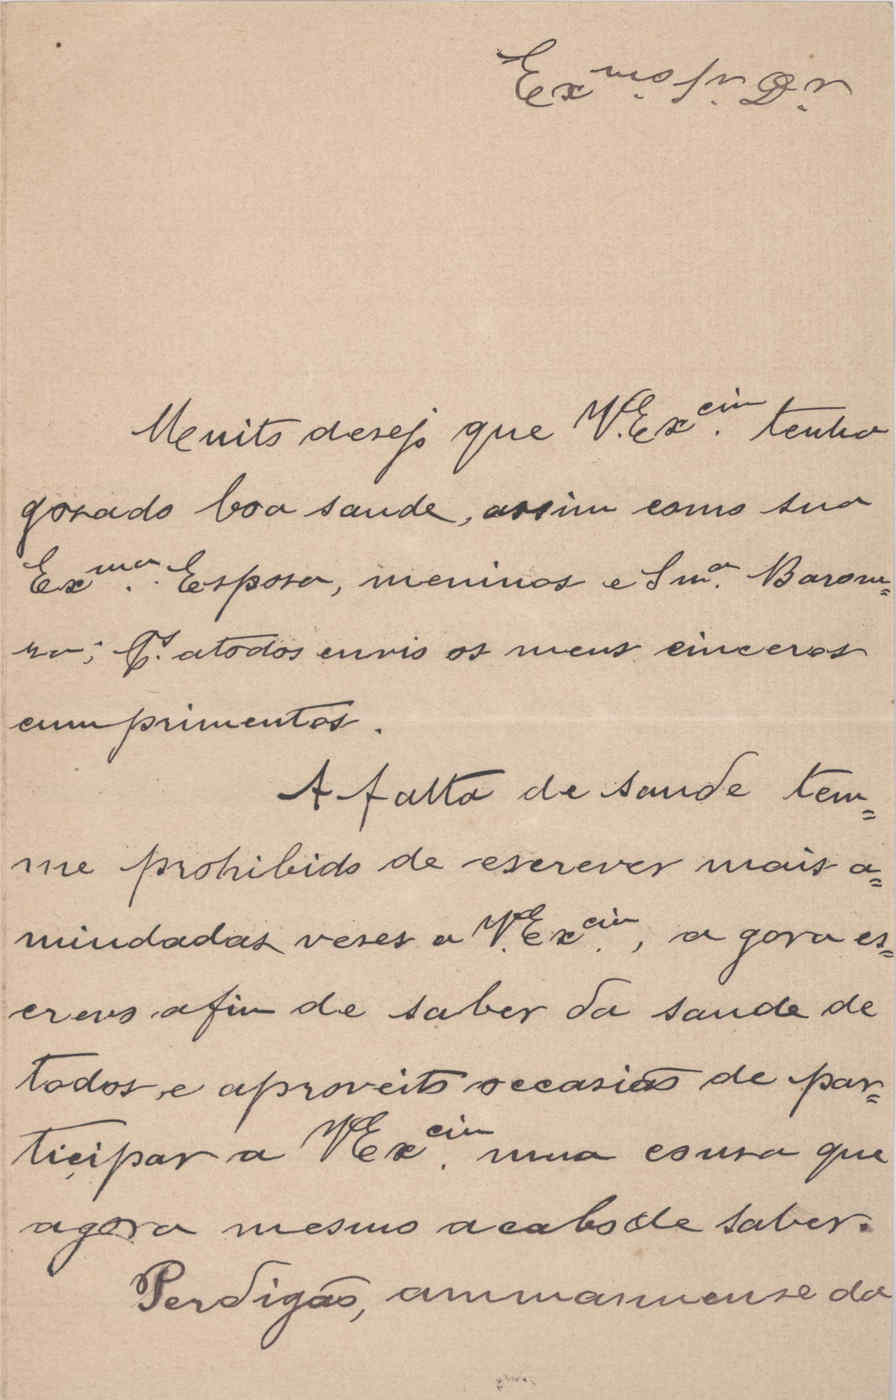 Exmo. Sr. Dr
Muito desejo que V. Excia. tenha
gosado boa saude, assim como sua
Exma. Esposa, meninos e Sma. Barone-
za; Qs. a todos envio os meus cinceros
cumprimentos.
A falta de saude tem=
me prohibido de escrever mais a=
mindadas veses a V. Excia., agora es=
crevo afim de saber da saude de
todos, e aproveito occasião de par=
ticipar a V Excia. uma cousa que
agora mesmo acabo de saber.
Perdigão, ammanuense da